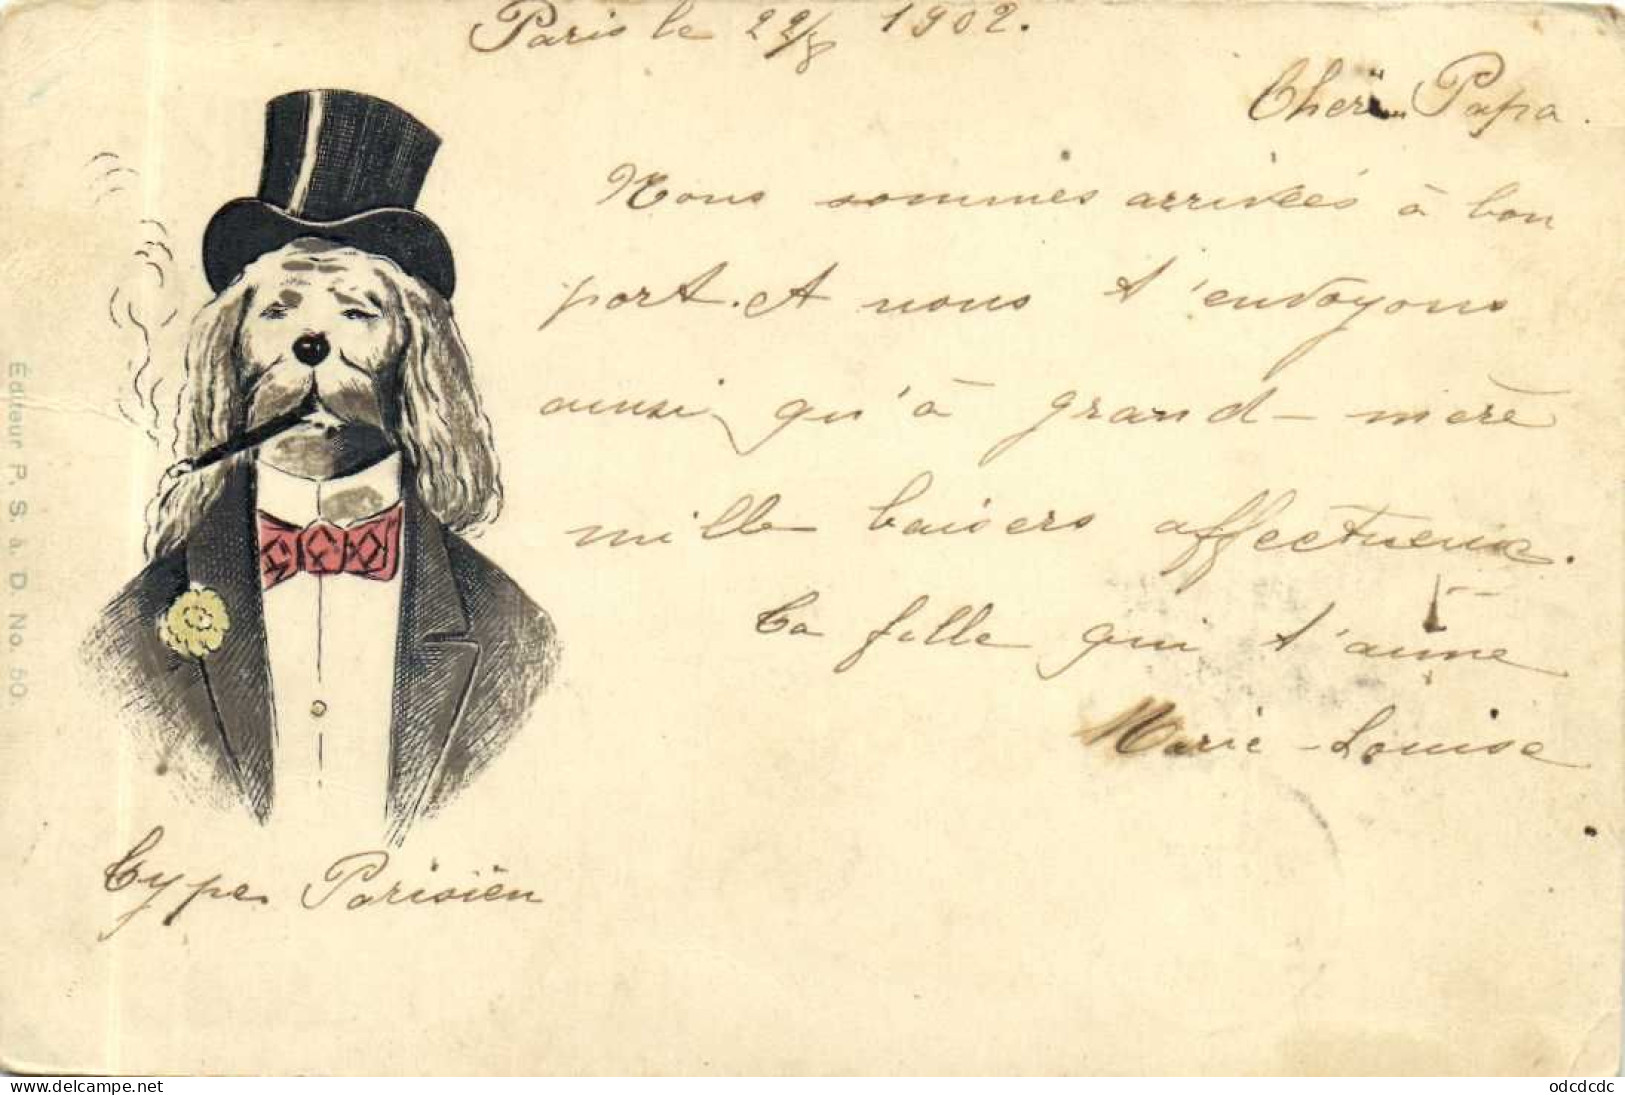 Paris le 22/8 1902.
Cheri Papa.
Nous sommes arrivées à bon
port. et nous t'envoyons
ainsi qu'à grand-mère
mille baisers affectueux.
Ta fille qui t'aime
Marie-Louise
Type Parisien
Éditeur P. S. à. D. No. 50.
www.delcampe.net
odcdcdc